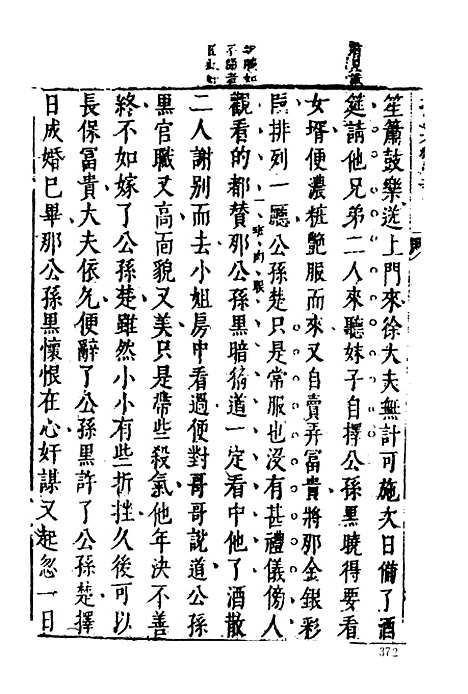 笙簫鼓樂送上門來徐大夫無計可施次日備了酒
筵請他兄弟二人來聽妹子自擇公孫黑曉得要看
女壻便濃粧艷服而來又自賣弄富貴將那金銀彩
叚排列一廳公孫楚只是常服也沒有甚禮儀傍人
觀看的都賛那公孫黑暗猜道一定看中他了酒散
二人謝別而去小姐房中看過便對哥哥說道公孫
黑官職又高面貌又美只是帶些殺氣他年決不善
終不如嫁了公孫楚雖然小小有些折挫久後可以
長保冨貴大夫依允便辭了公孫黑許了公孫楚擇
日成婚已畢那公孫黑懷恨在心奸謀又起忽一日
372